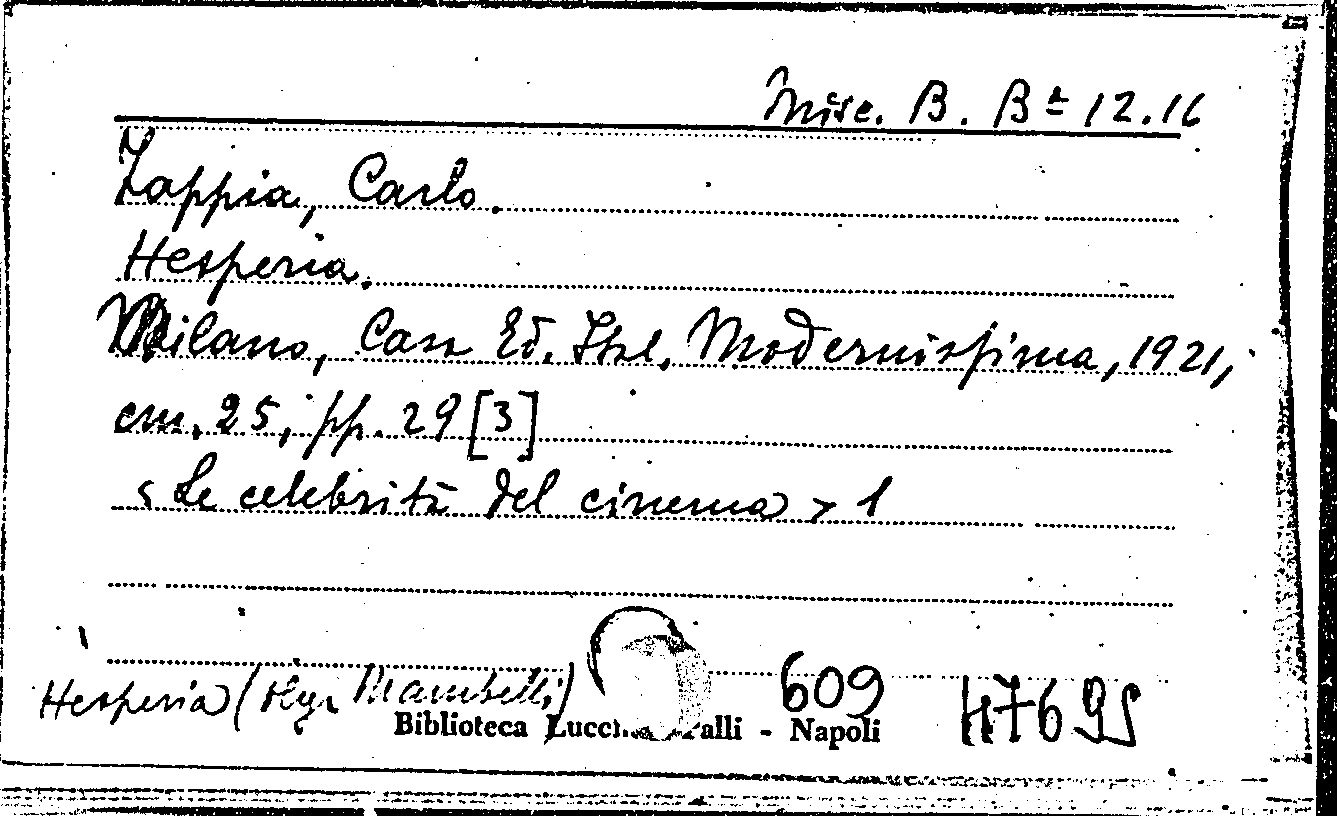 Misc. B. Bª 12.16
Zappia, Carlo.
Hesperia.
Milano, Casa Ed. Ital. Modernissima, 1921,
cm. 25, pp. 29 [3]
< Le celebrità del cinema > 1
Hesperia (Olga Mambelli)
609
47695
Biblioteca Lucc alli - Napoli